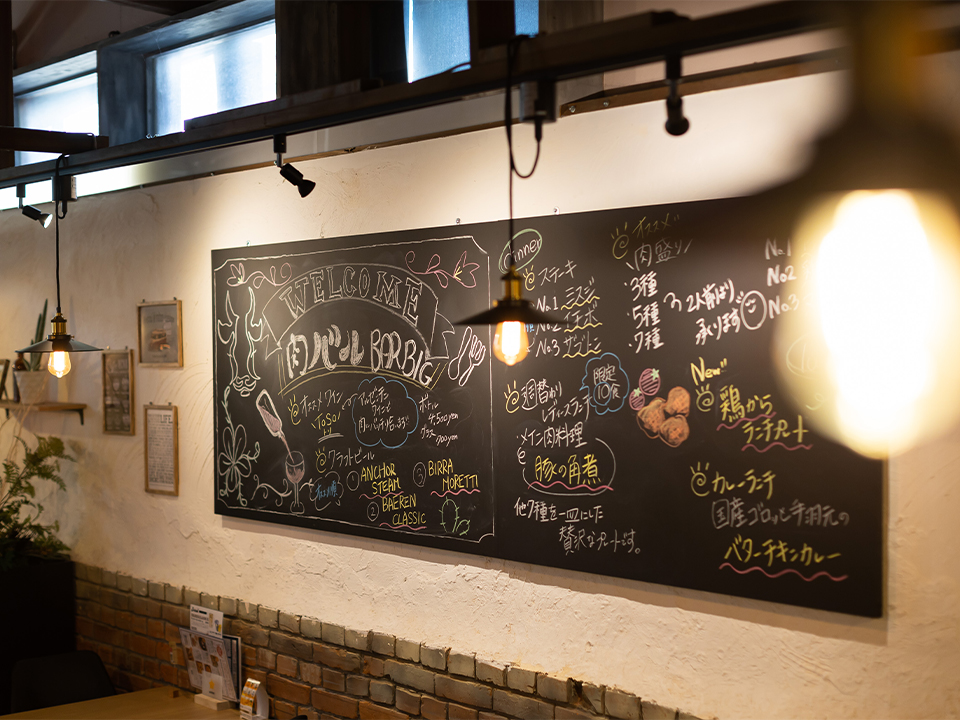 WELCOME
肉バル BARBIG
オススメワイン
TOSO
ボトル
4,500yen
グラス
700yen
クラフトビール
① ANCHOR
STEAM
② BAEREN
CLASSIC
③ BIRRA
MORETTI
Dinner
ステーキ
No.1 ミスジ
No.2 イチボ
No.3 ザブトン
オススメ
肉盛り
3種
5種
7種
2人前より
承ります
No.1
No.2
No.3
週替わり
レディースランチ
限定
10食
・メイン肉料理
豚の角煮
他7種を一皿にした
贅沢なプレートです。
New
鶏から
ランチプレート
カレーランチ
国産ゴロッと手羽元の
バターチキンカレー